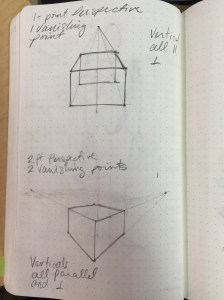 1-point Perspective
1 Vanishing
point
Vertic
all ||
⊥
2 pt Perspective
2 Vanishing points
Verticals
all parallel
and ⊥